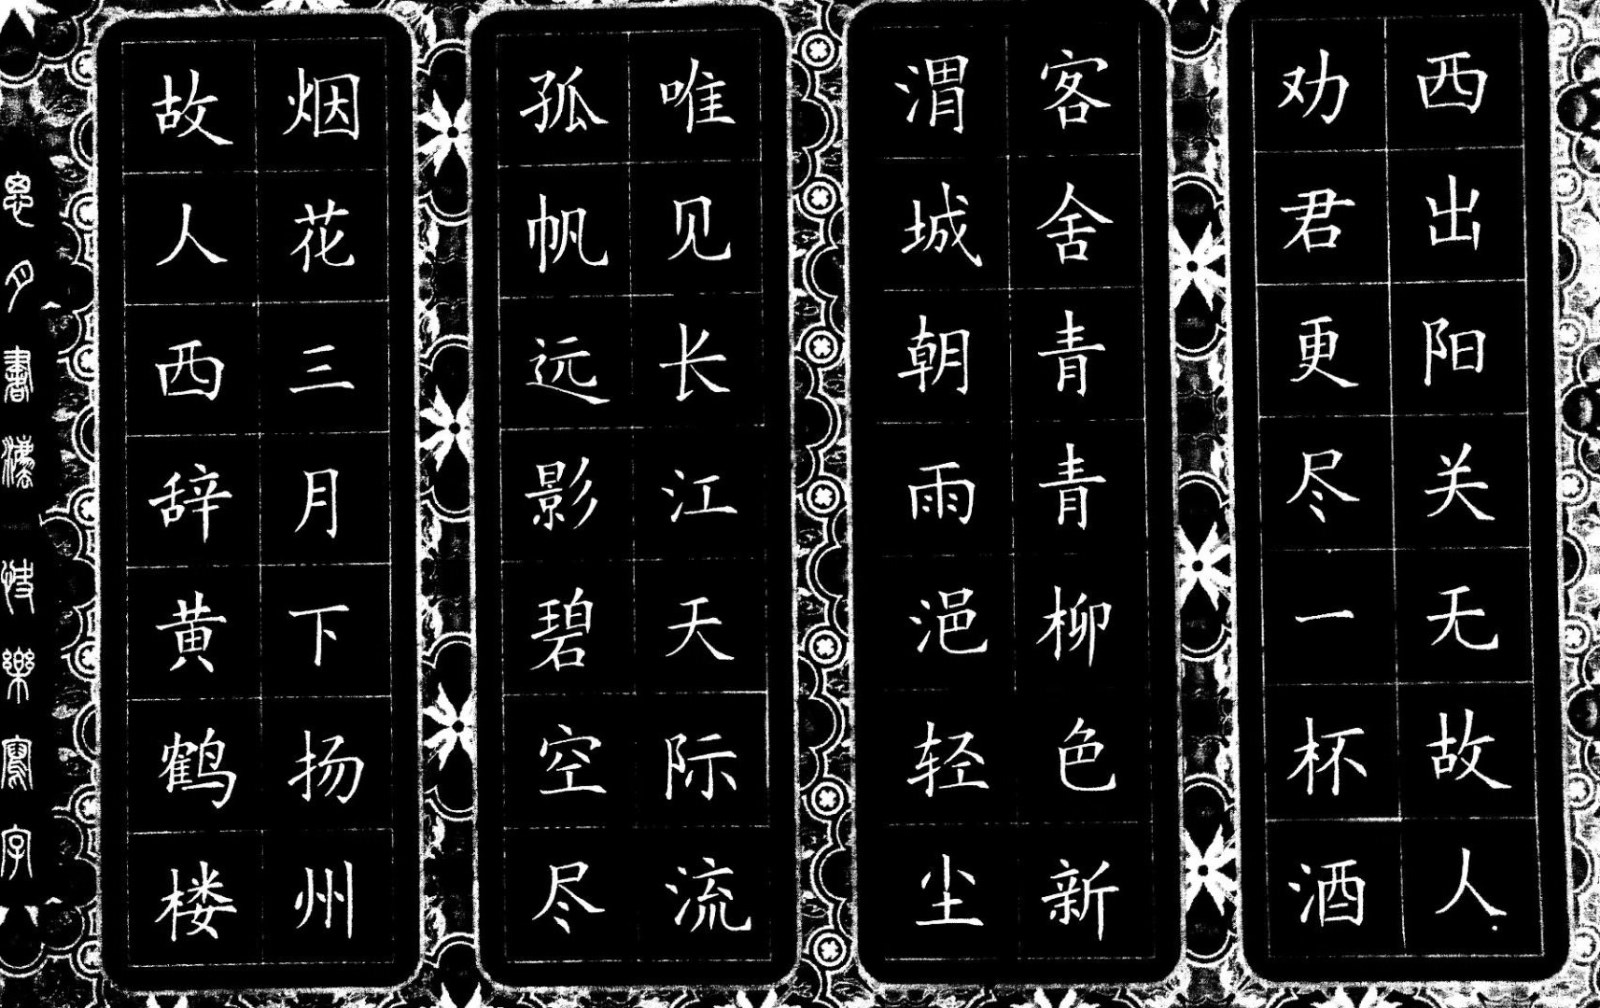 書灋快樂寫字
故人西辞黄鹤楼
烟花三月下扬州
孤帆远影碧空尽
唯见长江天际流
渭城朝雨浥轻尘
客舍青青柳色新
劝君更尽一杯酒
西出阳关无故人